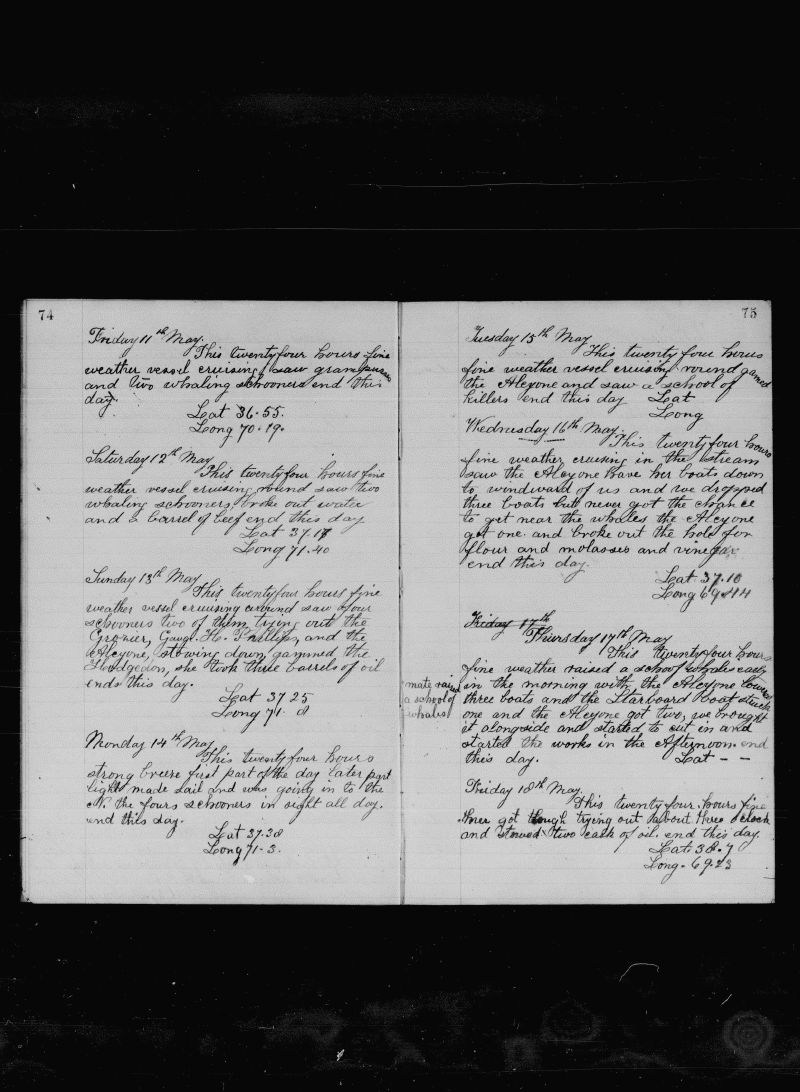 74
Friday 11th May.
This twentyfour hours fine
weather vessel cruising, saw grampuses
and two whaling schooners end this
day.
Lat 36-55.
Long 70-19.
Saturday 12th May
This twentyfour hours fine
weather vessel cruising round saw two
whaling schooners broke out water
and a barrel of beef end this day
Lat 37.18
Long 71.40
Sunday 13th May
This twentyfour hours fine
weather vessel cruising around saw four
schooners two of them trying out the
Grozier, Gaugr. H. Phillips, and the
Alcyone, stowing down, gammed the
Hodgedon, she took three barrels of oil
ends this day.
Lat 37 25
Long 71. 8
Monday 14th May
This twentyfour hours
strong breeze first part of the day later part
light made sail and was going in to the
N. the fours schooners in sight all day.
end this day.
Lat 37.38
Long 71-3.
75
Tuesday 15th May
This twenty four hours
fine weather vessel cruising round gamed
the Alcyone and saw a school of
killers end this day Lat
Long
Wednesday 16th May.
This twentyfour hours
fine weather cruising in the stream
saw the Alcyone have her boats down
to windward of us and we dropped
three boats but never got the chance
to get near the whales the Alcyone
got one and broke out the hold for
flour and molasses and vinegar
end this day.
Lat 37.10
Long 69-44
Friday 17th
Thursday 17th May
This twentyfour hours
fine weather raised a school whales early
in the morning with the Alcyone lowered
three boats and the Starboard boat struck
one and the Alcyone got two, we brought
it alongside and started to cut in and
started the works in the Afternoon end
this day. Lat - -
mate raised
a school of
whales
Friday 18th May.
This twenty four hours fine
got though trying out about three o clock
and stowed two cask of oil. end this day.
Lat 38-7
Long. 69.23